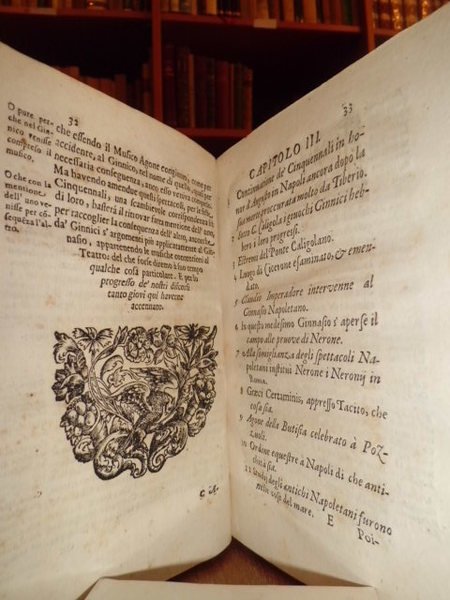 32
O pure, per-
che nel Gin-
nico venisse
compreso il
musico.
O che con la
mentione
dell' uno ve-
nisse per cõ-
seguenza l'al-
tro.
che essendo il Musico Agone compreso, come per
accidente, al Ginnico, nel nome di questo, così per
necessaria conseguenza, anco esso veniva compreso.
Ma havendo amendue questi spettacoli, per le feste
Cinquennali, una scambievole corrispondenza
di loro, basterà il ritrovar farsi mentione dell' uno,
per raccoglier la conseguenza dell' altro, ancorche
da' Ginnici s'argomenti più applicatamente al Gin-
nasio, appartenendo le musiche contentioni al
Teatro: del che forse diremo à suo tempo
qualche cosa particolare. E per lo
progresso de' nostri discorsi
tanto giovi qui haverne
accennato.
33
CAPITOLO III.
1 Continuatione de' Cinquennali in ho-
nor d'Augusto in Napoli ancora dopo la
sua morte procurata molto da Tiberio.
2 Sotto C. Caligola i giuochi Ginnici heb-
bero i loro progressi.
3 Estremi del Ponte Caligolano.
4 Luogo di Cicerone esaminato, & emen-
dato.
5 Claudio Imperadore intervenne al
Ginnasio Napoletano.
6 In questo medesimo Ginnasio s'aperse il
campo alle pruove di Nerone.
7 Alla somiglianza degli spettacoli Na-
poletani instituì Nerone i Neronij in
Roma.
8 Græci Certaminis, appresso Tacito, che
cosa sia.
9 Agone della Butisia celebrato à Poz-
zuoli.
10 Ordine equestre à Napoli di che anti-
chità sia.
11 Studi degli antichi Napoletani furono
nelle cose del mare.
E
Poi-